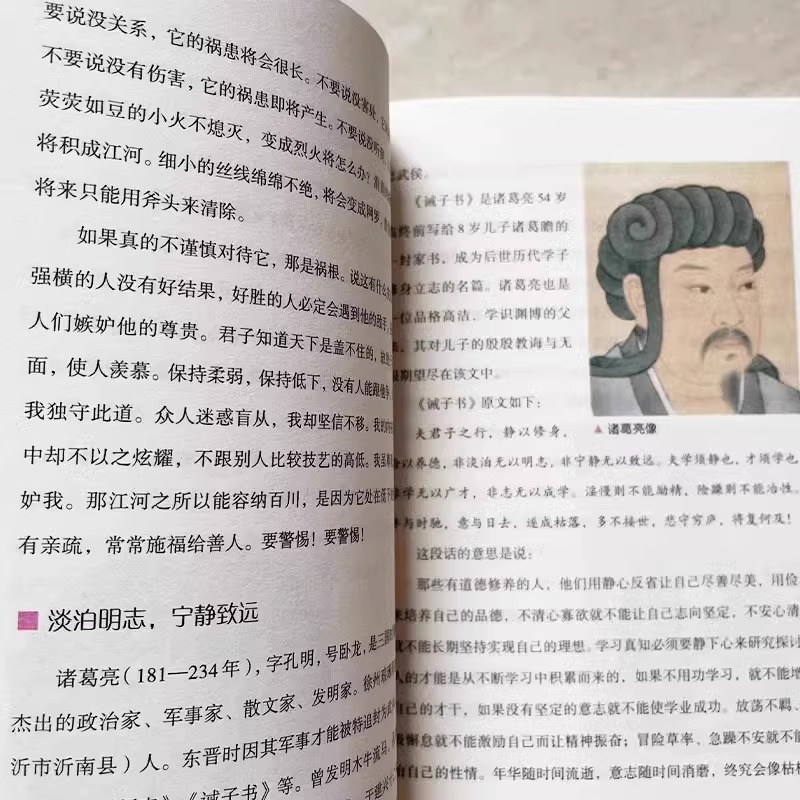 要说没关系，它的祸患将会很长。不要说没害处，它
不要说没有伤害，它的祸患即将产生。不要说听
荧荧如豆的小火不熄灭，变成烈火将怎么办？
将积成江河。细小的丝线绵绵不绝，将会变成网罗，
将来只能用斧头来清除。
如果真的不谨慎对待它，那是祸根。说这有什么
强横的人没有好结果，好胜的人必定会遇到他的敌手。
人们嫉妒他的尊贵。君子知道天下是盖不住的，故
面，使人羡慕。保持柔弱，保持低下，没有人能跟他争
我独守此道。众人迷惑盲从，我却坚信不移。我的内
中却不以之炫耀，不跟别人比较技艺的高低。我虽
妒我。那江河之所以能容纳百川，是因为它处在低下
有亲疏，常常施福给善人。要警惕！要警惕！
淡泊明志，宁静致远
诸葛亮（181—234年），字孔明，号卧龙，是三国
杰出的政治家、军事家、散文家、发明家。徐州琅
沂市沂南县）人。东晋时因其军事才能被特追封为武
《诫子书》等。曾发明木牛流马、
武侯。
《诫子书》是诸葛亮54岁
临终前写给8岁儿子诸葛瞻的
一封家书，成为后世历代学子
修身立志的名篇。诸葛亮也是
一位品格高洁、学识渊博的父
亲，其对儿子的殷殷教诲与无
限期望尽在该文中。
《诫子书》原文如下：
▲诸葛亮像
夫君子之行，静以修身，
俭以养德，非淡泊无以明志，非宁静无以致远。夫学须静也，才须学也，
非学无以广才，非志无以成学。淫慢则不能励精，险躁则不能冶性。
年与时驰，意与日去，遂成枯落，多不接世，悲守穷庐，将复何及！
这段话的意思是说：
那些有道德修养的人，他们用静心反省让自己尽善尽美，用俭
来培养自己的品德，不清心寡欲就不能让自己志向坚定，不安心清
就不能长期坚持实现自己的理想。学习真知必须要静下心来研究探讨
人的才能是从不断学习中积累而来的，如果不用功学习，就不能增
自己的才干，如果没有坚定的意志就不能使学业成功。放荡不羁、
懈怠就不能激励自己而让精神振奋；冒险草率、急躁不安就不能
有自己的性情。年华随时间流逝，意志随时间消磨，终究会像枯